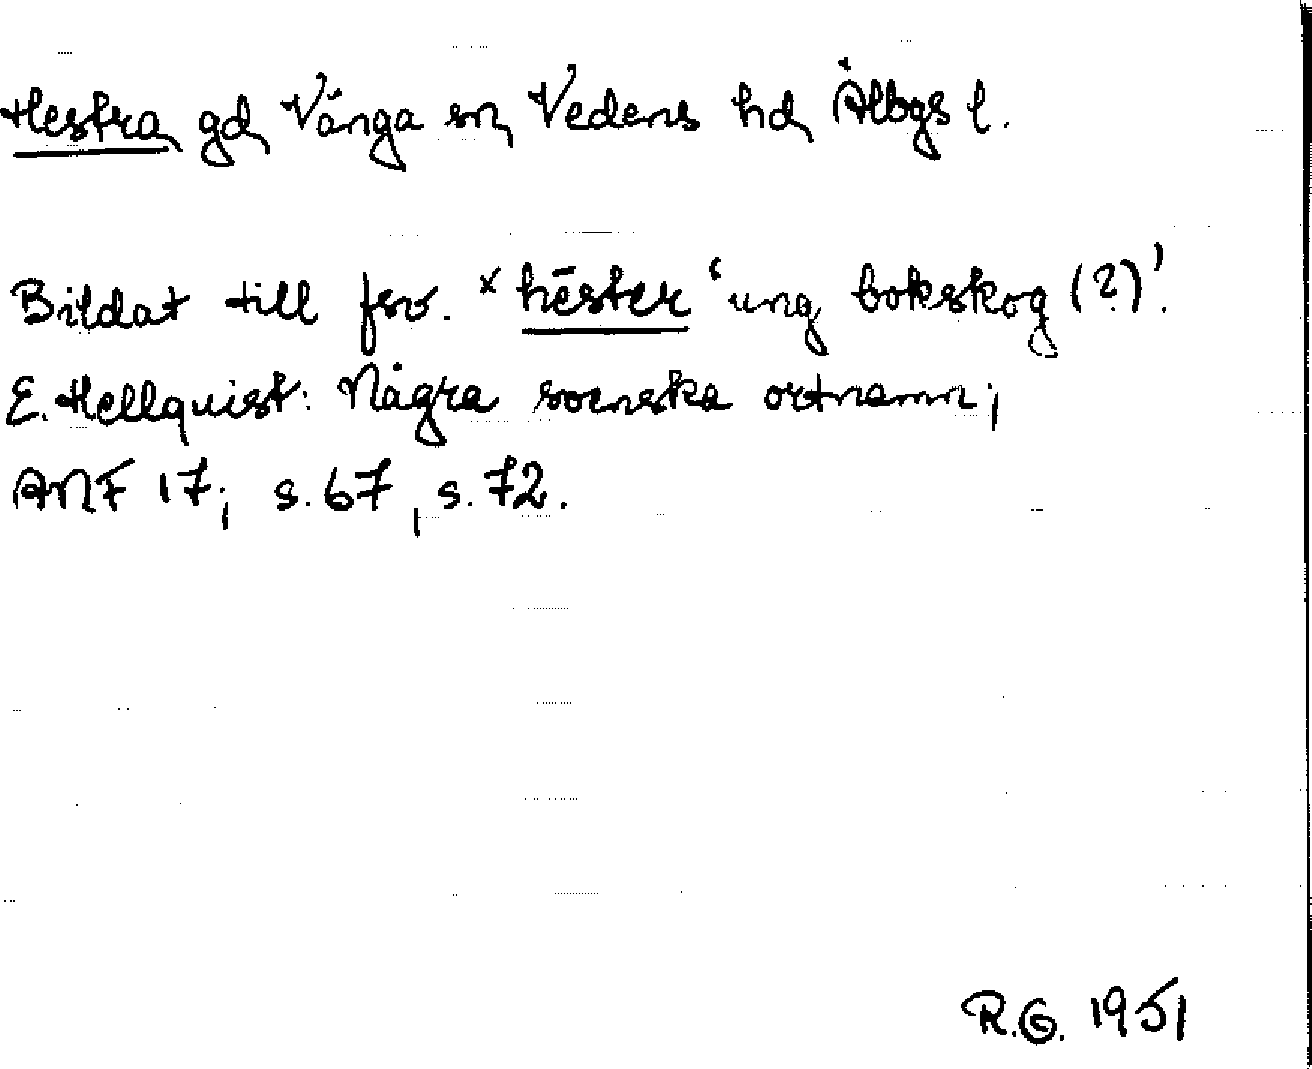 Hestra gd Vänga sn Vedens hd Älbgs l.
Bildat till fsv. *hēster ‘ung bokskog (?)’.
E. Hellquist: Några svenska ortnamn;
ANF 17; s. 67, s. 72.
R.G. 1951